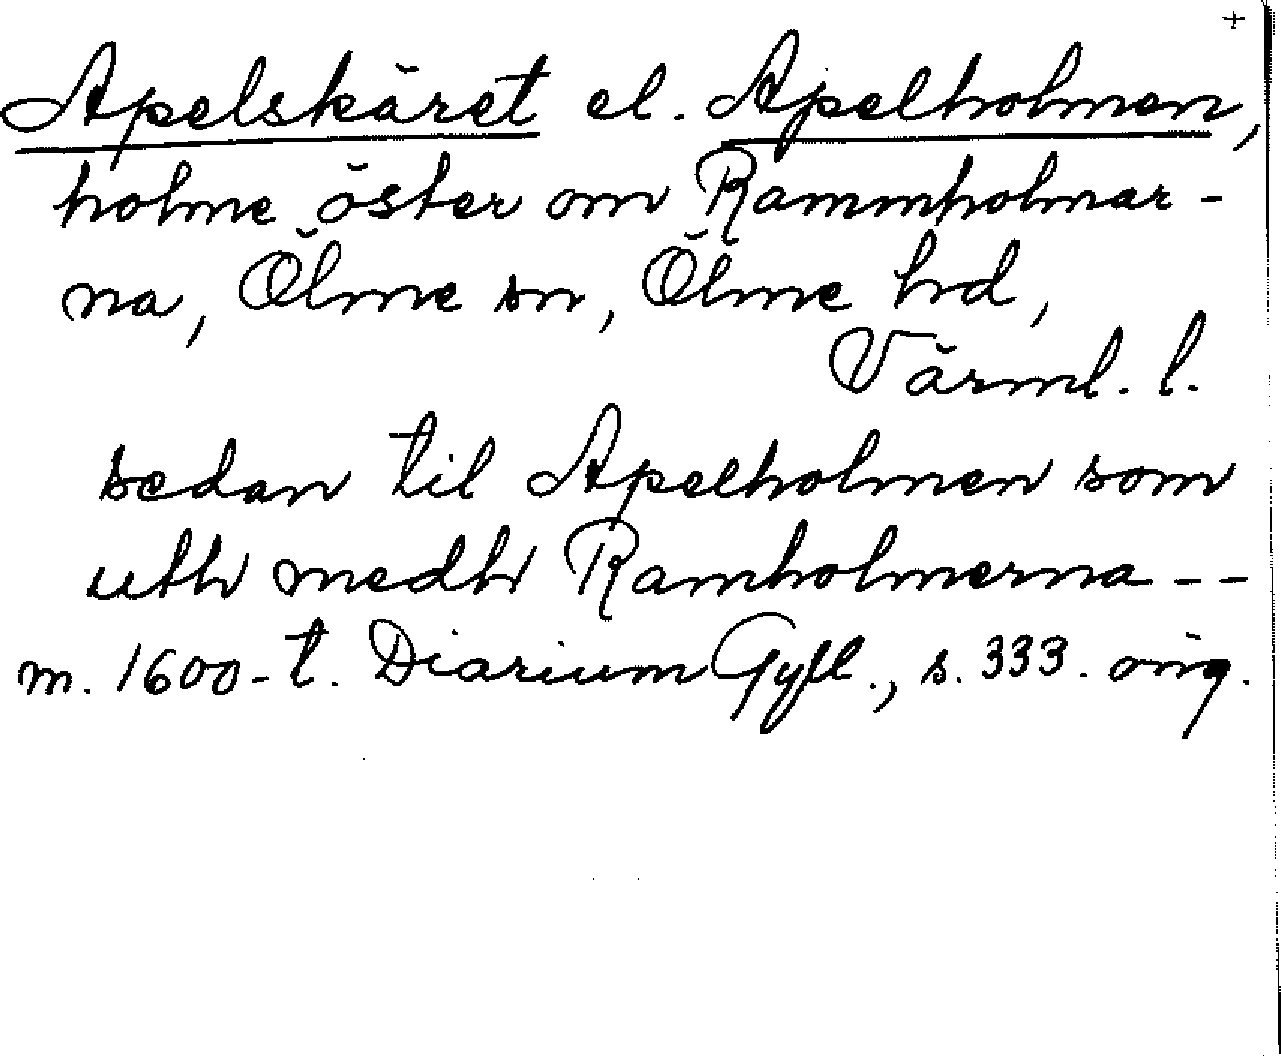 +
Apelskäret el. Apelholmen,
holme öster om Rammholmar-
na, Ölme sn, Ölme hd,
Värml. l.
sedan til Apelholmen som
uth medh Ramholmerna --
m. 1600-t. Diarium Gyll., s. 333. orig.